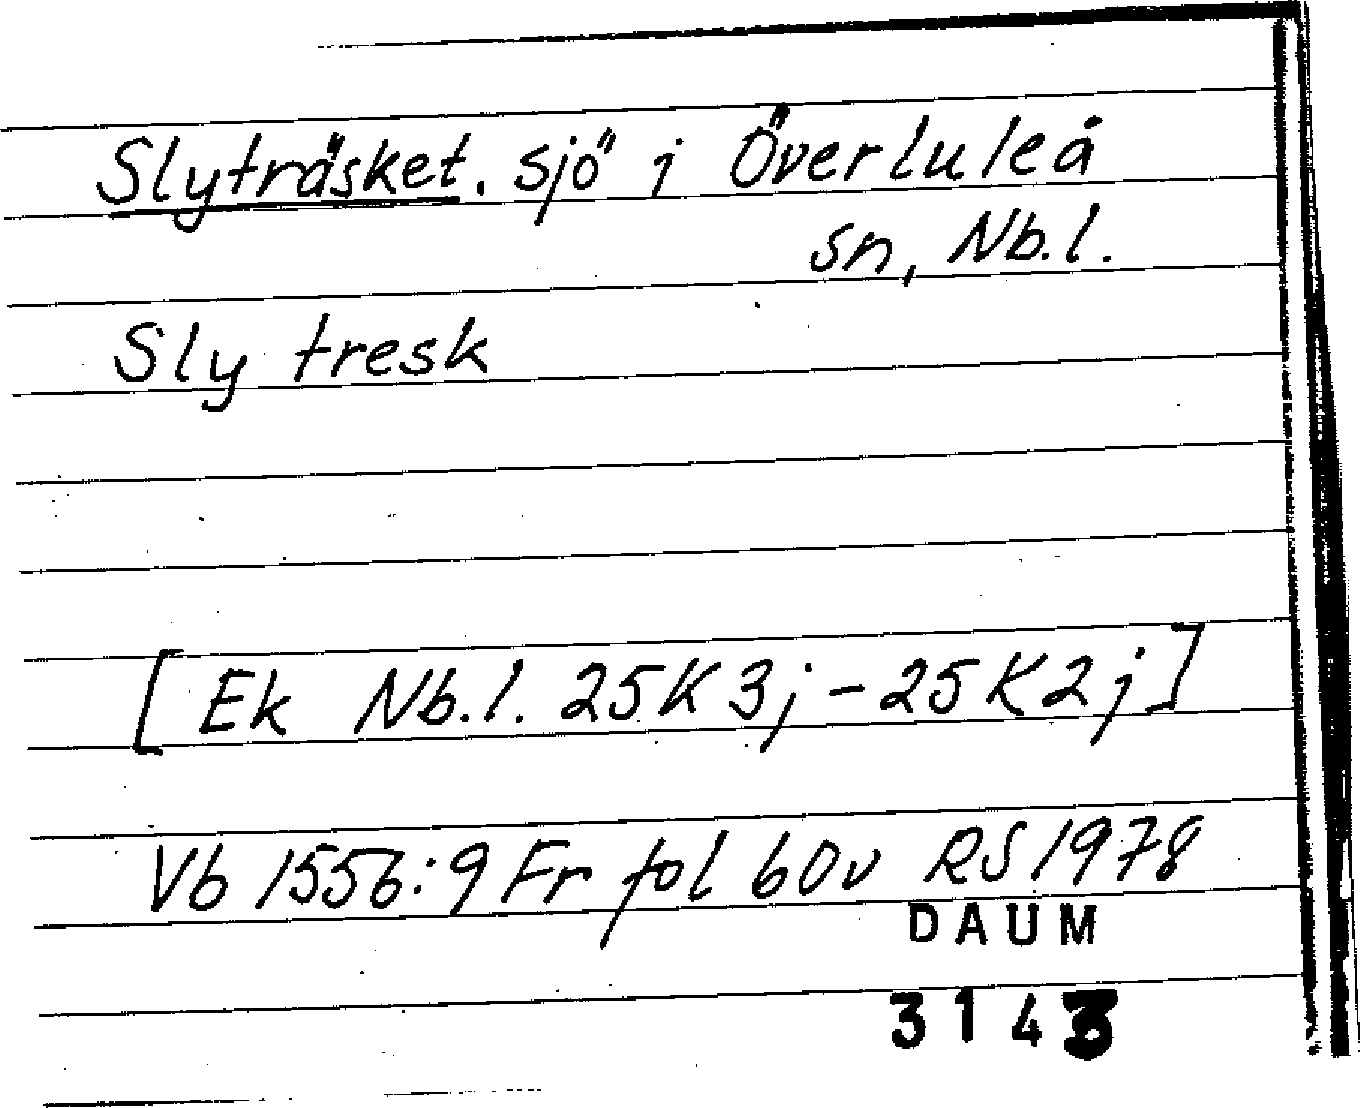 Slyträsket. sjö i Överluleå
sn, Nb.l.
Sly tresk
[Ek Nb.l. 25K3j-25K2j]
Vb 1556:9 Fr fol 60v RS 1978
DAUM
3143